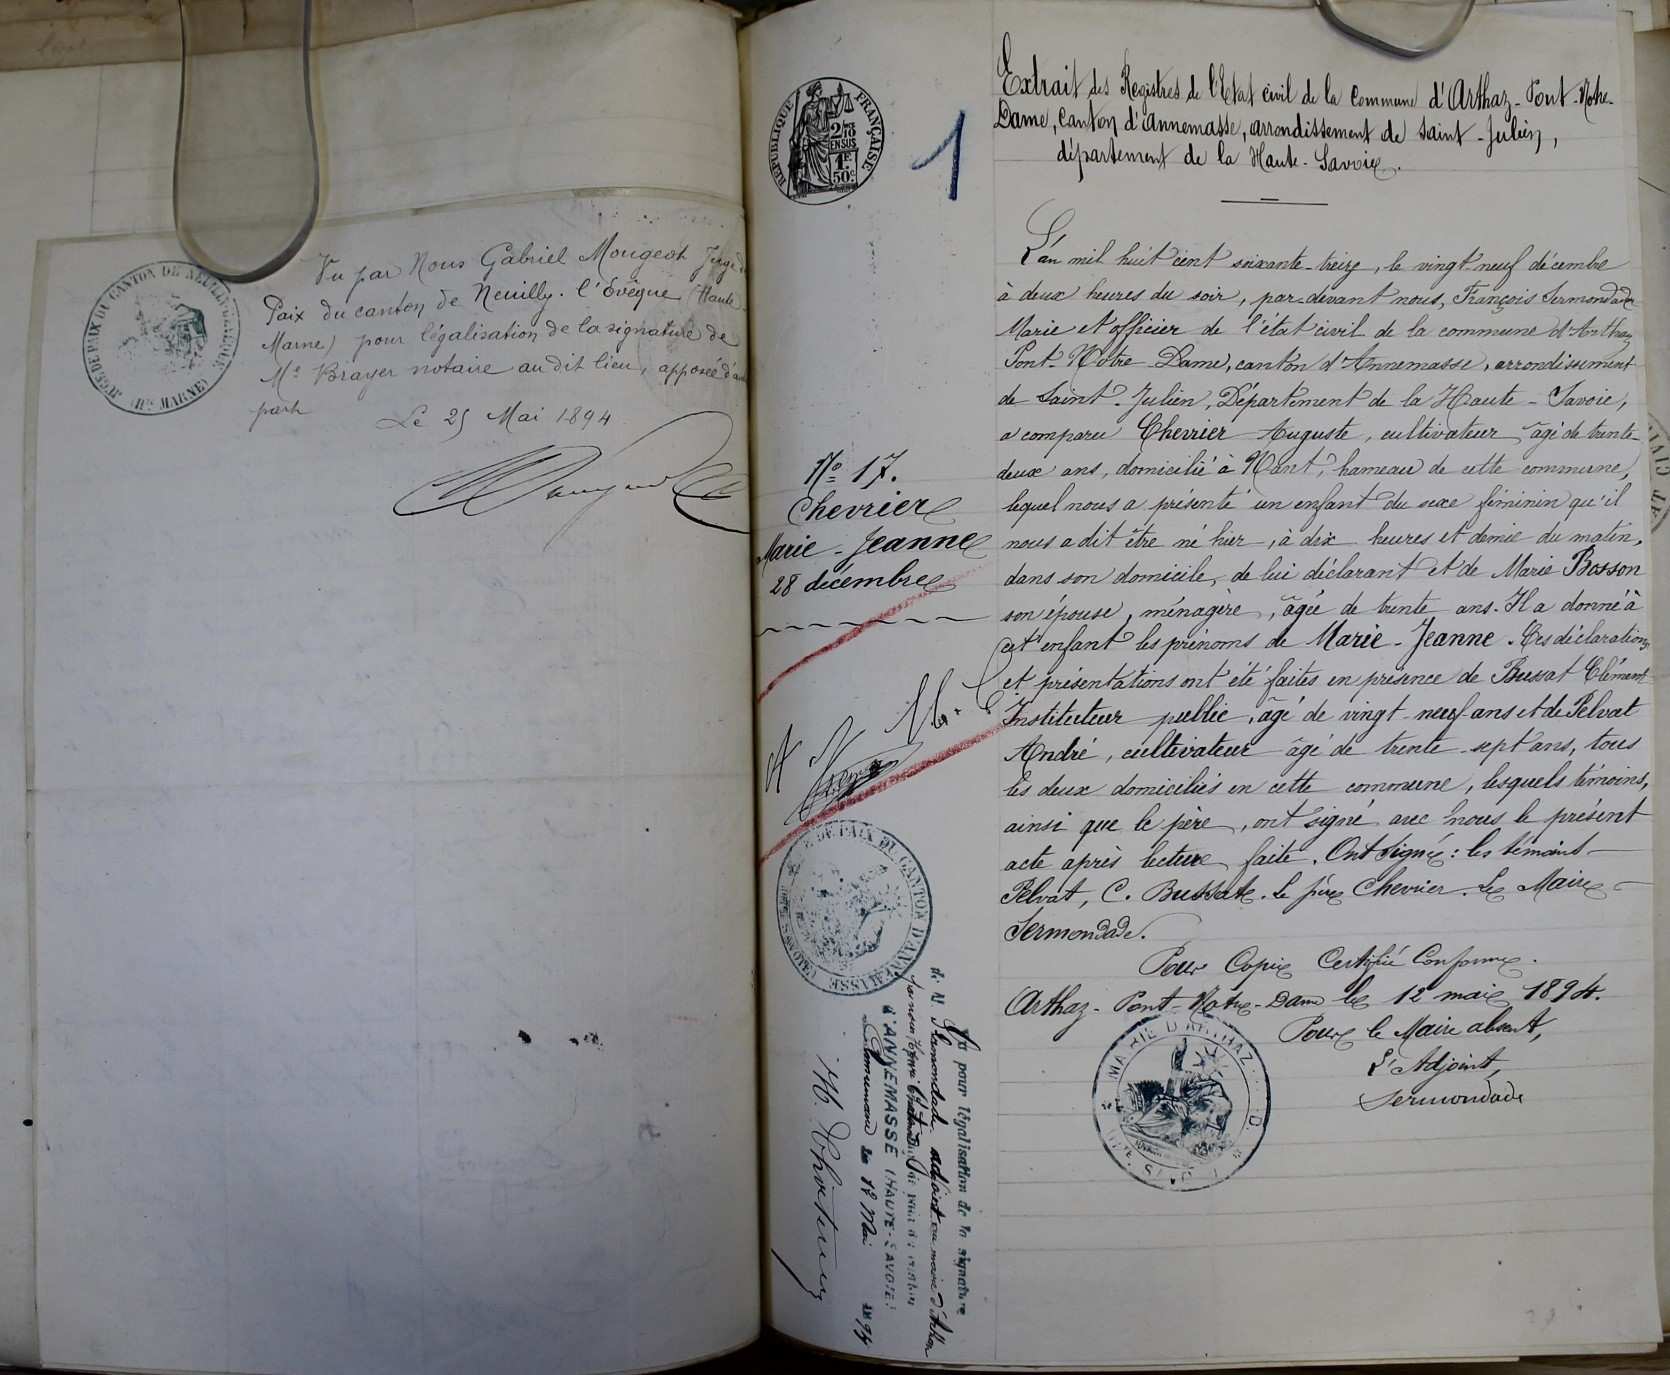 Vu par Nous Gabriel Mougeot Juge de
Paix du canton de Neuilly-l'Evêque (Haute-
Marne) pour légalisation de la signature de
Me Brayer notaire au dit lieu, apposée d'autre
part
Le 25 Mai 1894
JUGE DE PAIX DU CANTON DE NEUILLY-L'EVEQUE (Hte MARNE)
REPUBLIQUE FRANÇAISE
2/10
EN SUS
1F
50c
1
Extrait des Registres de l'Etat civil de la Commune d'Arthaz-Pont-Notre-
Dame, Canton d'Annemasse, arrondissement de Saint-Julien,
département de la Haute-Savoie.
No 17.
Chevrier
Marie-Jeanne
28 décembre
L'an mil huit cent soixante-treize, le vingt neuf décembre
à deux heures du soir, par-devant nous, François Sermondade
Marie et officier de l'état civil de la commune d'Arthaz
Pont-Notre-Dame, canton d'Annemasse, arrondissement
de Saint-Julien, Département de la Haute-Savoie,
a comparu Chevrier Auguste, cultivateur âgé de trente-
deux ans, domicilié à Nant, hameau de cette commune,
lequel nous a présenté un enfant du sexe féminin qu'il
nous a dit être né hier, à dix heures et demie du matin,
dans son domicile, de lui déclarant et de Marie Bosson
son épouse, ménagère, âgée de trente ans. Il a donné à
cet enfant les prénoms de Marie-Jeanne. Ces déclarations
et présentations ont été faites en présence de Bussat Clément
Instituteur public, âgé de vingt-neuf ans et de Pelvat
André, cultivateur âgé de trente-sept ans, tous
les deux domiciliés en cette commune, lesquels témoins,
ainsi que le père, ont signé avec nous le présent
acte après lecture faite. Ont signé: les témoins
Pelvat, C. Bussat. Le père Chevrier. Le Maire
Sermondade.
Pour Copie Certifié Conforme.
Arthaz-Pont-Notre-Dame le 12 mai 1894.
Pour le Maire absent,
L'Adjoint,
Sermondade
MAIRIE D'ARTHAZ P. N. D.
JUGE DE PAIX DU CANTON D'ANNEMASSE
Vu pour légalisation de la signature
de M Sermondade adjoint au maire d'Arthaz
juge de paix du canton
d'ANNEMASSE (HAUTE-SAVOIE)
Annemasse le 12 Mai 1894